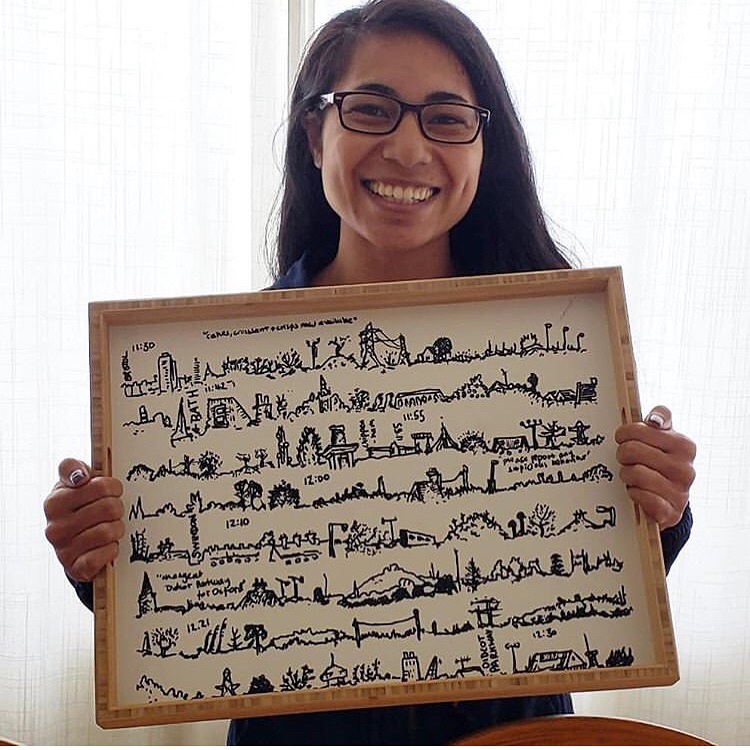 "cakes, croissant + crisps now available"
11:30
BRISTOL
BATH
11:42
11:55
12:00
"please report any
SWINDON
12:10
Didcot Parkway
for Oxford"
12:21
DIDCOT
PARKWAY
12:30